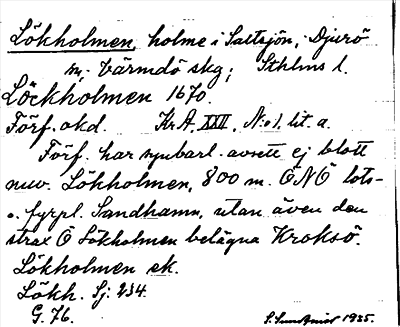 Lökholmen, holme i Saltsjön, Djurö
m. Värmdö skg; Sthlms l.
Löckholmen 1670.
Förf. okd. Kr.A. XXII, N:o 1. lit. a.
Förf. har synbarl. avsett ej blott
nuv. Lökholmen, 800 m. ÖNÖ lots-
o. fyrpl. Sandhamn, utan även den
strax Ö Lökholmen belägna Kroksö.
Lökholmen ek.
Lökh. Sj: 234.
G. 76. 1935.